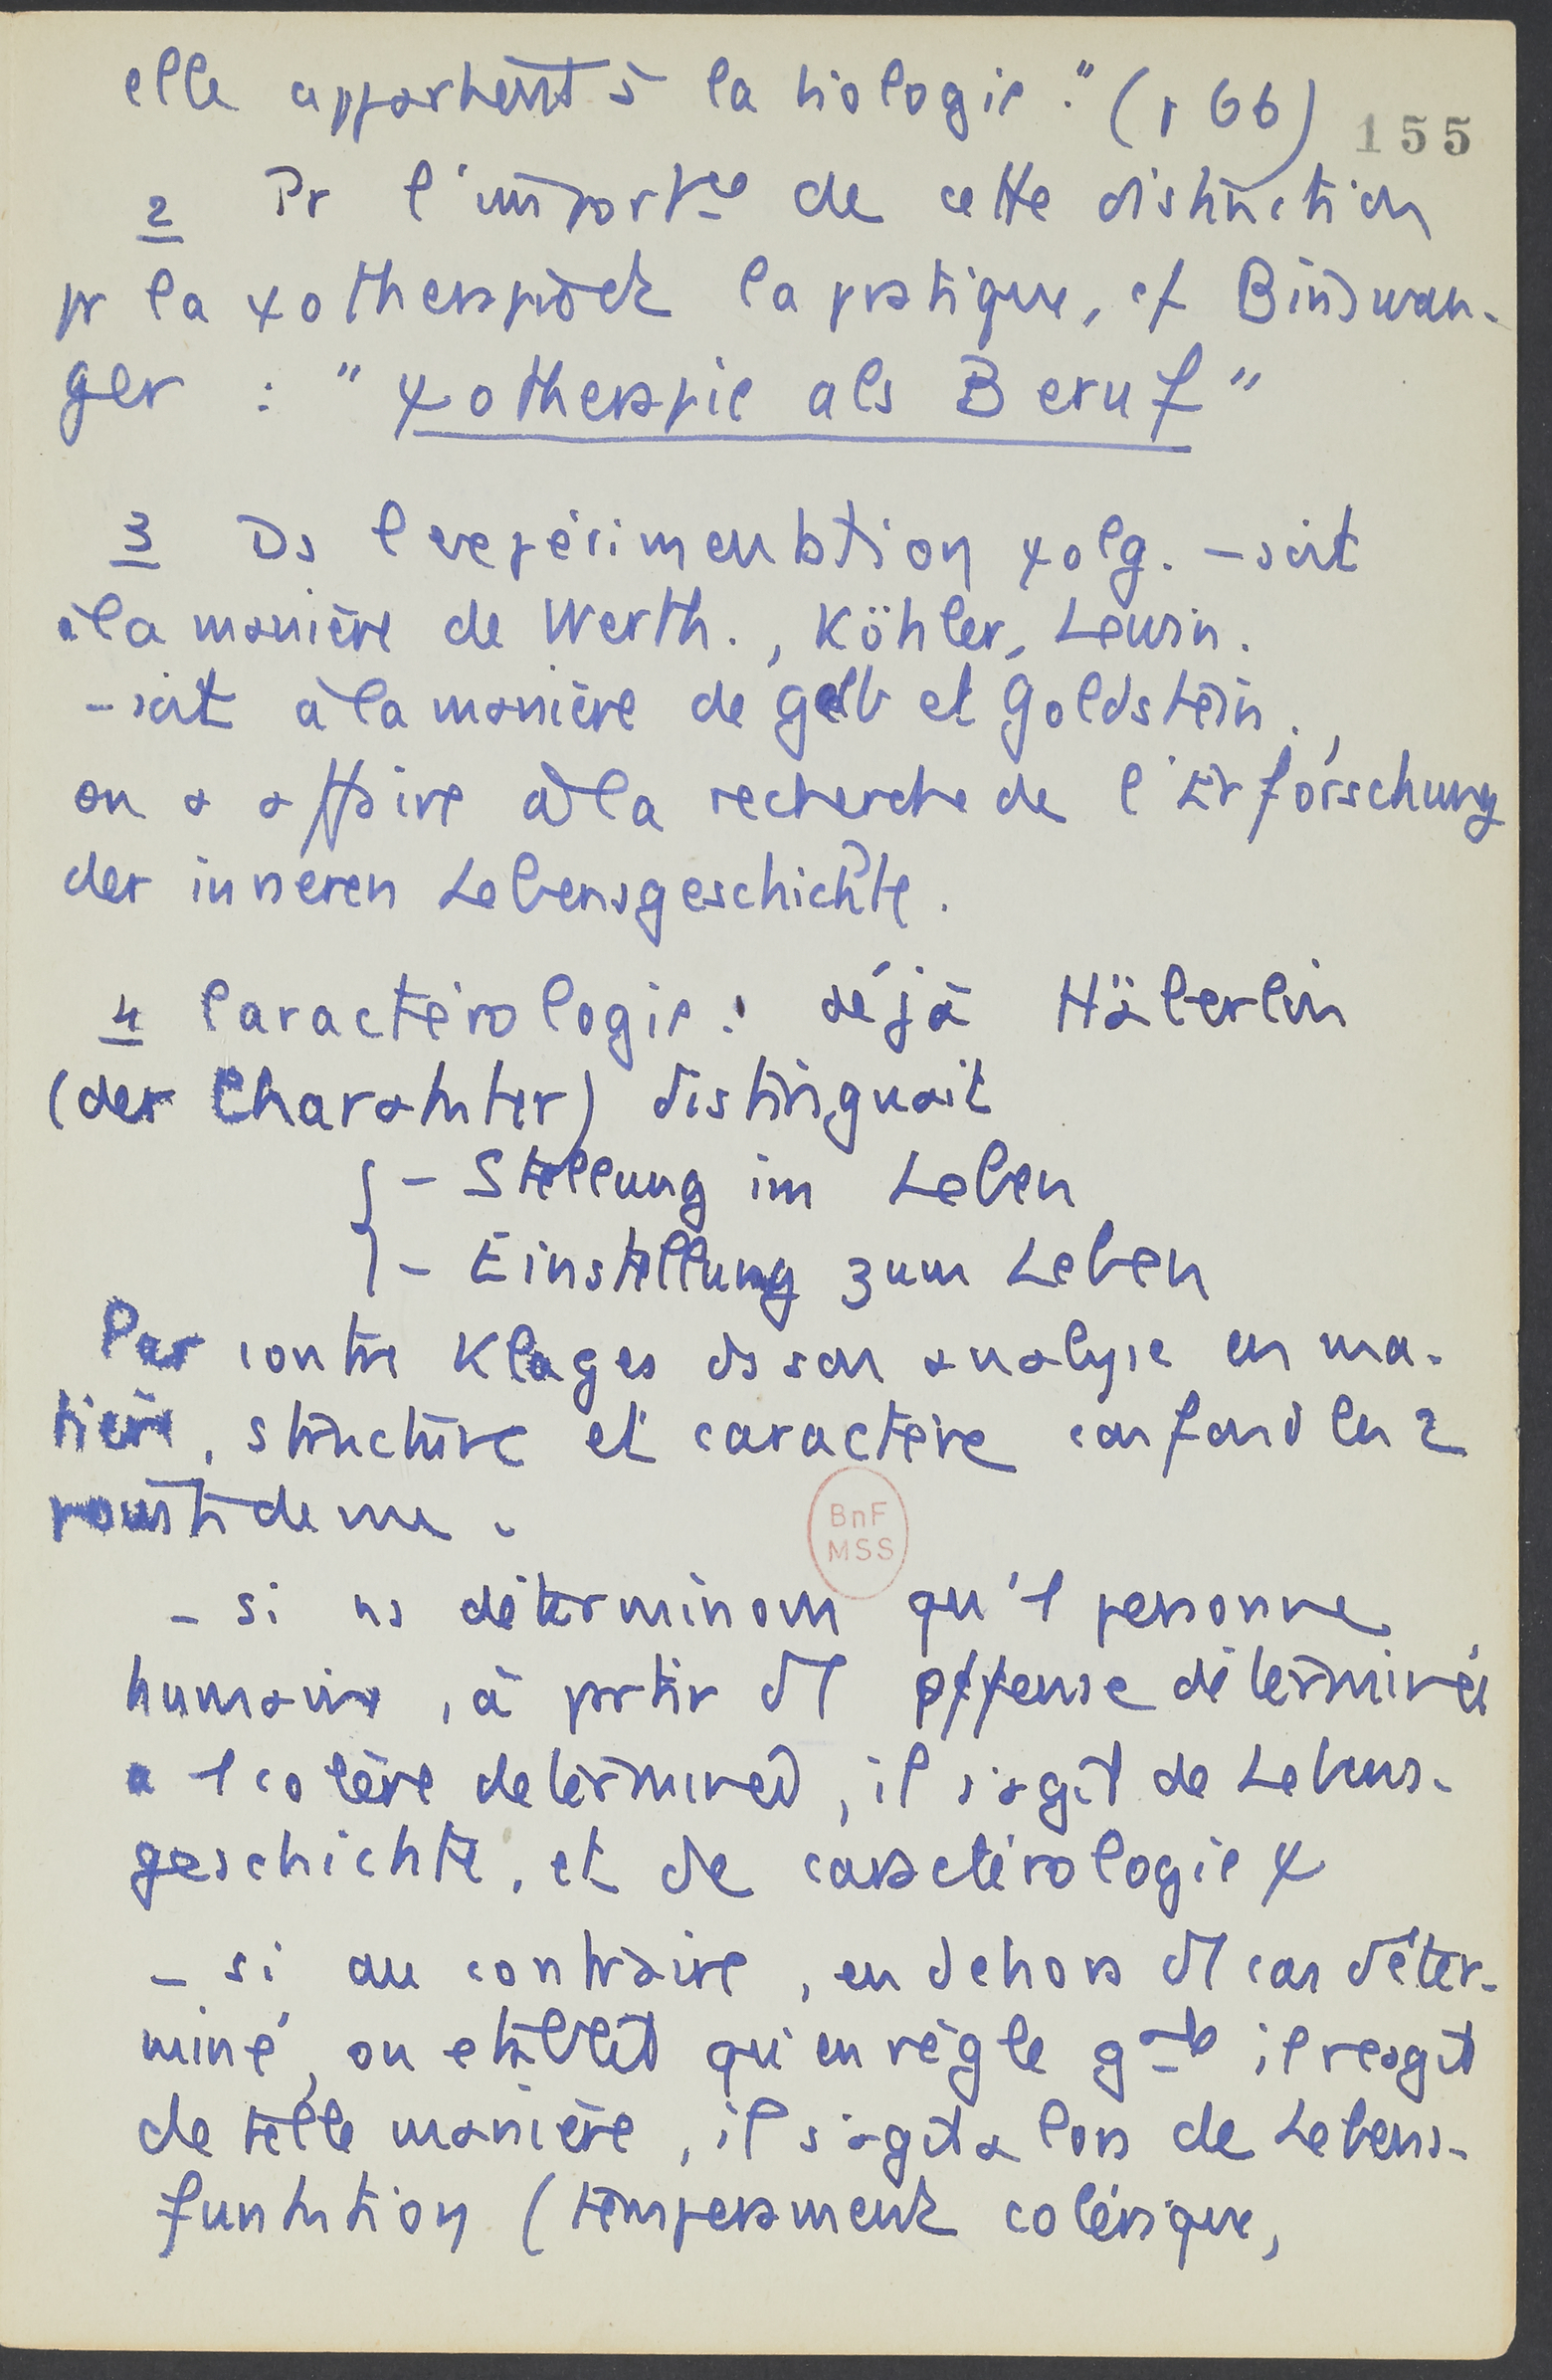 elle appartient à la biologie." (p 66)
155
2 Pr l'importce de cette distinction
pr la ψothérapie et la pratique, cf Binswan-
ger : "ψotherapie als Beruf"
3 Ds l'expérimentation ψolg. - soit
à la manière de Werth., Köhler, Lewin.
- soit à la manière de Gelb et Goldstein.,
on a affaire à la recherche de l'Erforschung
der inneren Lebensgeschichte.
4 Caractérologie: déjà Häberlin
(der Charakter) distinguait
- Stellung im Leben
- Einstellung zum Leben
Par contre Klages ds son analyse en ma-
tière, structure et caractère confond les 2
points de vue.
BnF
MSS
- si ns déterminons qu'1 personne
humaine, à partir d1 offense déterminée
a 1 colère déterminée, il s'agit de Lebens-
geschichte, et de caractérologie ψ
- si au contraire, en dehors d1 cas déter-
miné, on établit qu'en règle gale il réagit
de telle manière, il s'agit alors de Lebens-
funktion (tempérament colérique,